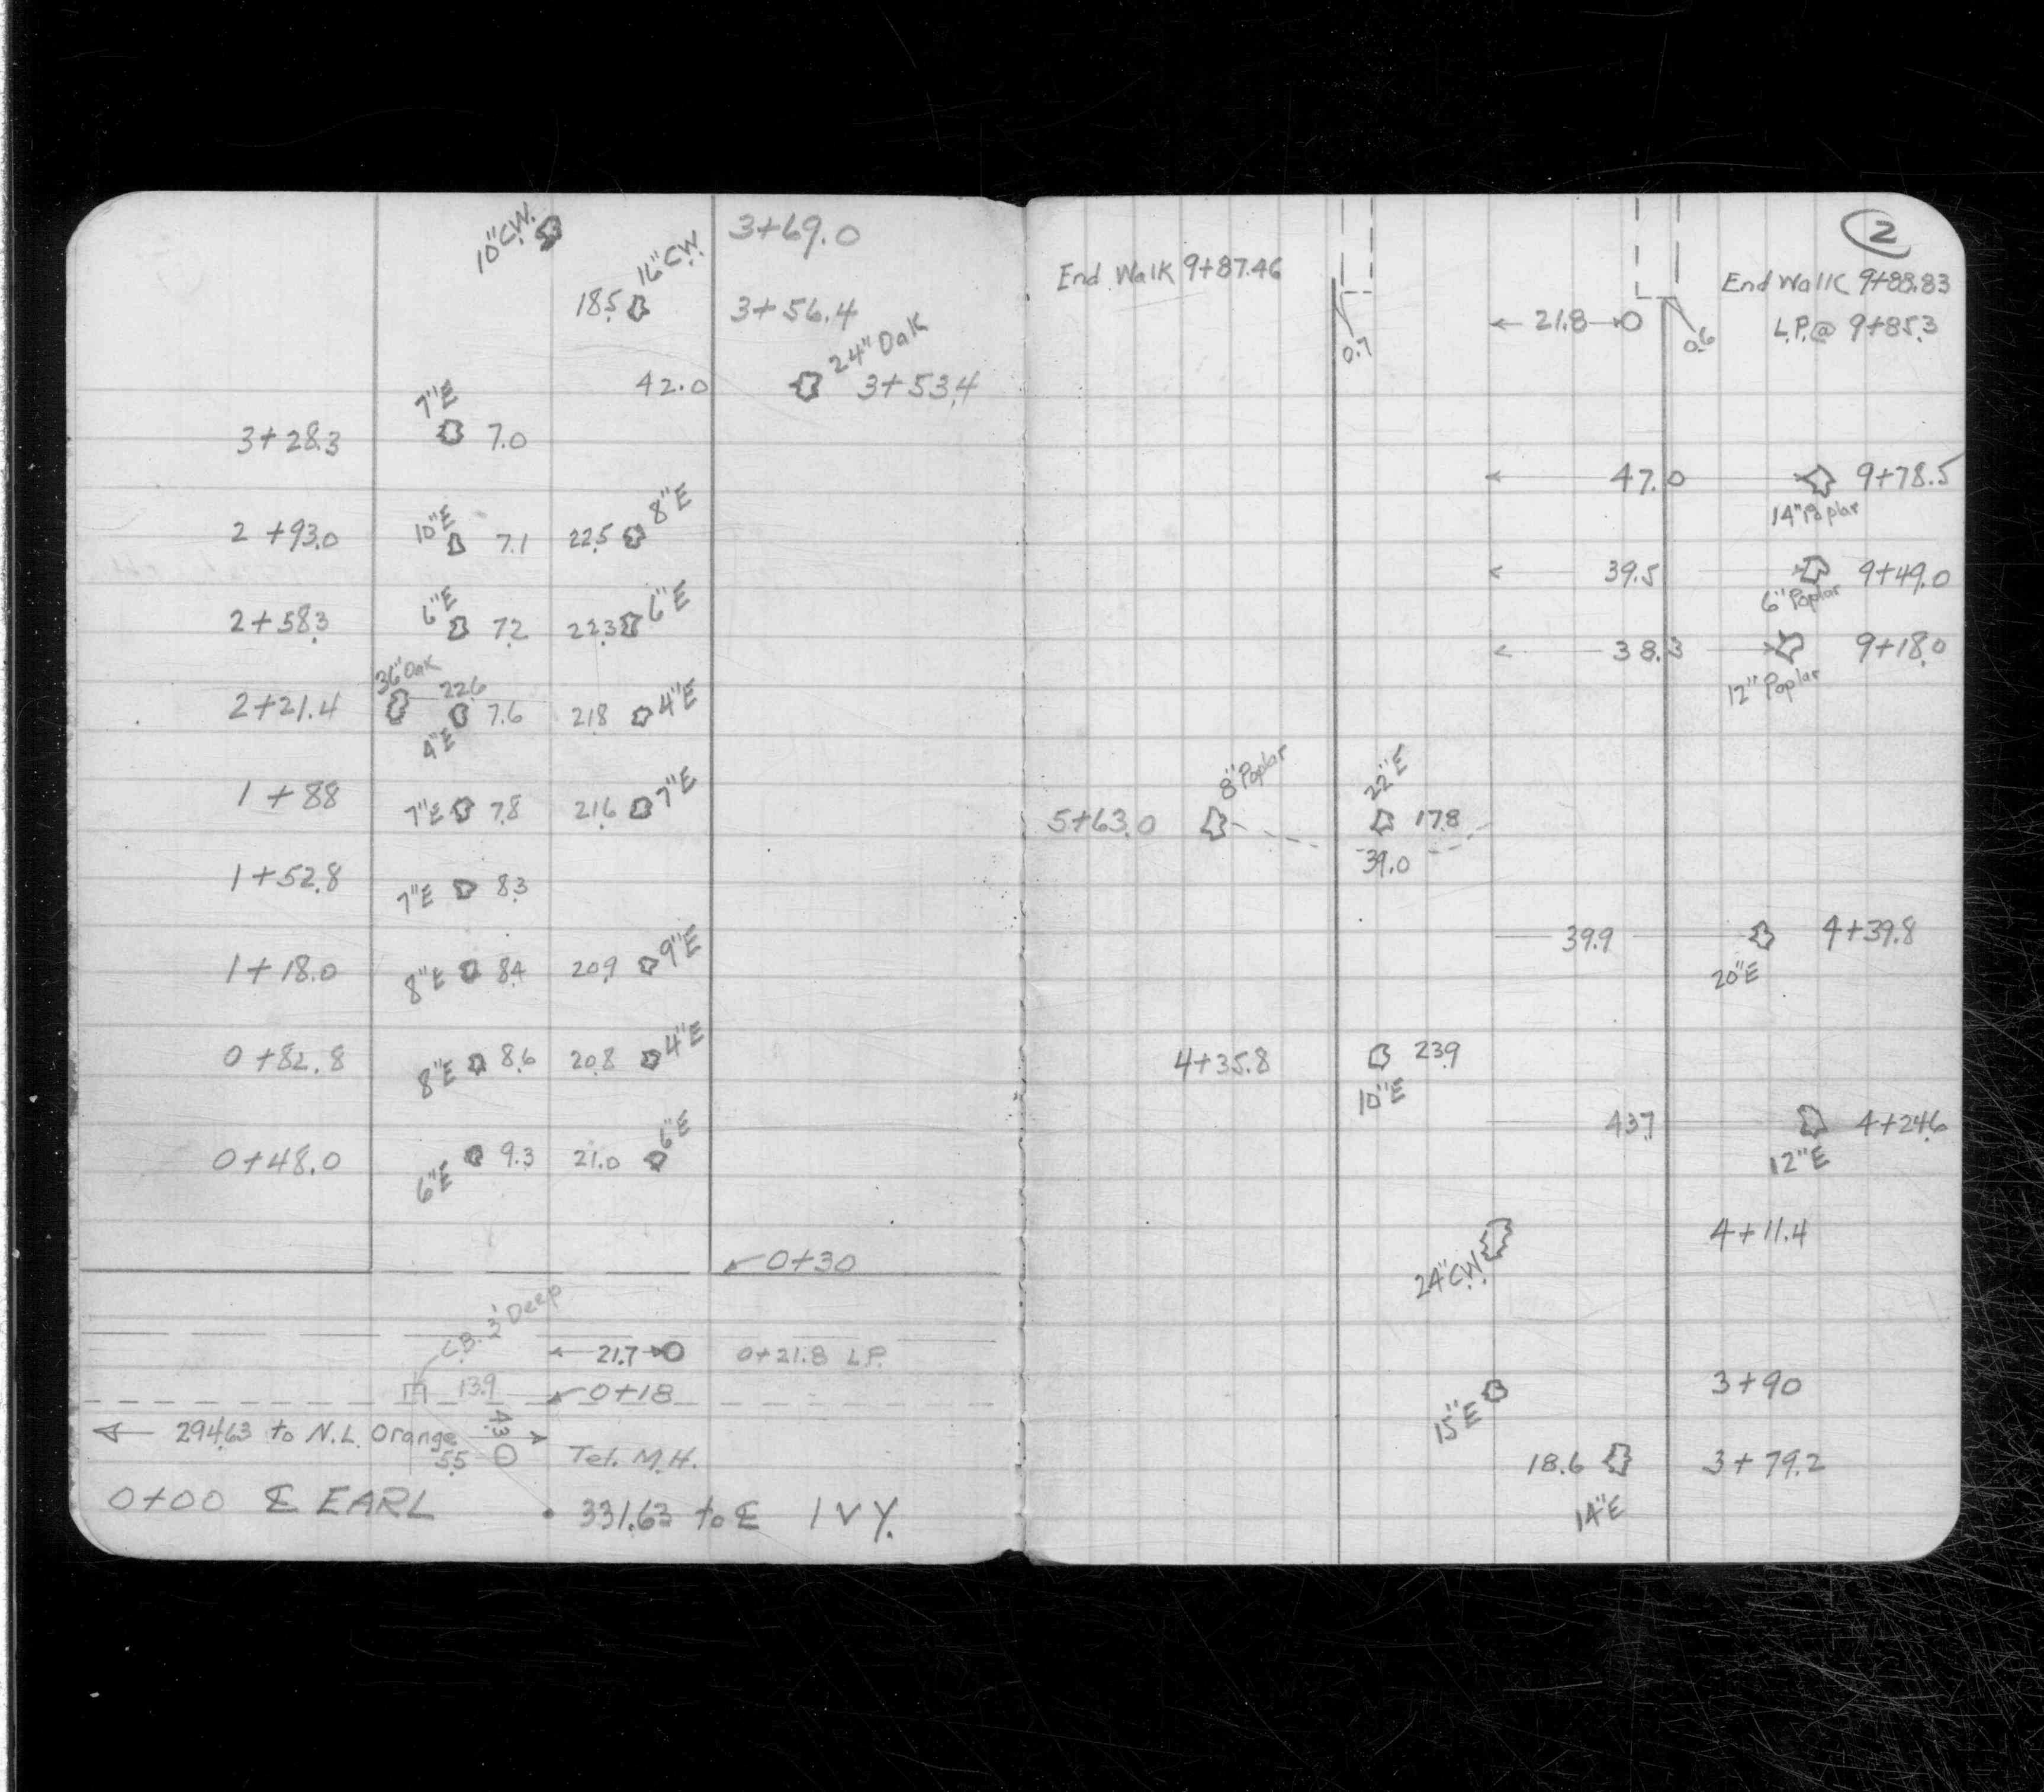 10"C.W. 3+69.0
16"C.W.
18.5 3+56.4
24" Oak
42.0 3+53.4
7"E
3+28.3 7.0
10"E 8"E
2+93.0 7.1 22.5
6"E 6"E
2+58.3 7.2 22.3
36" Oak 22.6
2+21.4 7.6 21.8 4"E
4"E
1+88 7"E 7.8 21.6 7"E
1+52.8 7"E 8.3
1+18.0 8"E 8.4 20.9 9"E
0+82.8 8"E 8.6 20.8 4"E
0+48.0 6"E 9.3 21.0 6"E
0+30
C.B. 3' Deep
21.7 0+21.8 L.P.
13.9 0+18
294.63 to N.L. Orange 4.3
5.5 Tel. M.H.
0+00 ℄ EARL 331.63 to ℄ IVY.
2
End Walk 9+87.46 End Walk 9+88.83
21.8 L.P. @ 9+85.3
0.7 0.6
47.0 9+78.5
14" Poplar
39.5 9+49.0
6" Poplar
38.3 9+18.0
12" Poplar
8" Poplar 22"E
5+63.0 17.8
39.0
39.9 4+39.8
20"E
4+35.8 23.9
10"E
43.7 4+24.6
12"E
4+11.4
24"C.W.
3+90
15"E
18.6 3+79.2
14"E